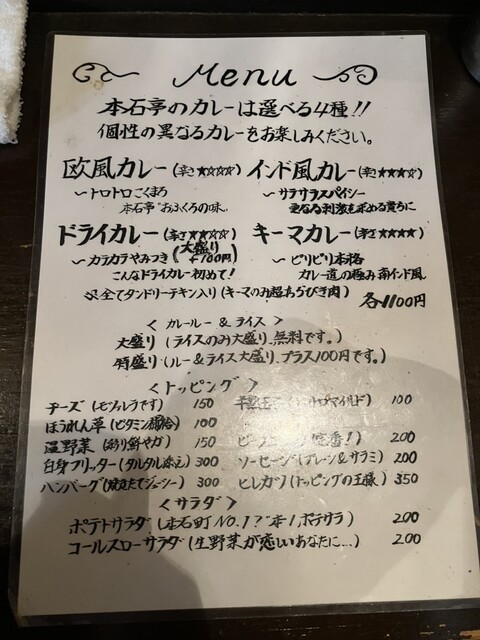 Menu
本石亭のカレーは選べる4種!!
個性の異なるカレーをお楽しみください。
欧風カレー(辛さ★☆☆☆) インド風カレー(辛さ★★★☆)
~トロトロこくまろ ~サラサラスパイシー
本石亭"おふくろの味" 更なる刺激を求める貴方に
ドライカレー(辛さ★★☆☆) キーマカレー(辛さ★★★★)
~カラカラやみつき(大盛り+100円) ~ピリピリ本格
こんなドライカレー初めて! カレー道の極み南インド風
※全てタンドリーチキン入り(キーマのみ超あらびき肉) 各1100円
<カレールー&ライス>
大盛り(ライスのみ大盛り、無料です。)
特盛り(ルー&ライス大盛り、プラス100円です。)
<トッピング>
チーズ(モツァレラです) 150 100
ほうれん草(ビタミン補給) 100
温野菜(彩り鮮やか) 150 200
白身フリッター(タルタル添え) 300 ソーセージ(プレーン&サラミ) 200
ハンバーグ(焼きたてジューシー) 300 ヒレカツ(トッピングの王様) 350
<サラダ>
ポテトサラダ(本石町NO.1?ポテサラ) 200
コールスローサラダ(生野菜が恋しいあなたに…) 200